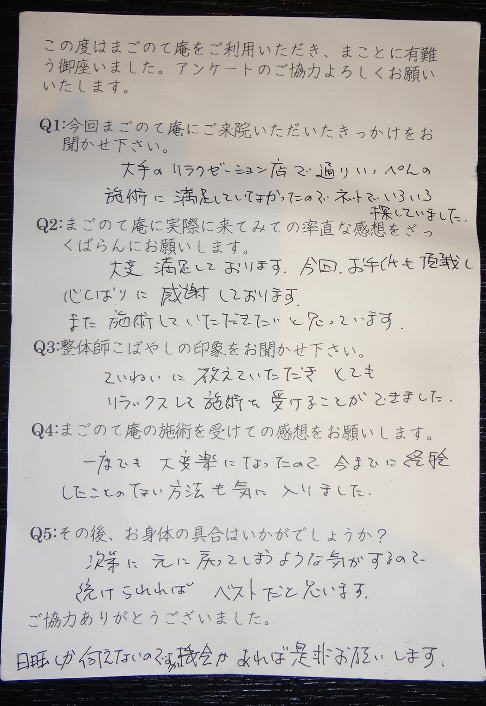 この度はまごのて庵をご利用いただき、まことに有難
う御座いました。アンケートのご協力よろしくお願い
いたします。
Q1:今回まごのて庵にご来院いただいたきっかけをお
聞かせ下さい。
大手のリラクゼーション店で通りいっぺんの
施術に満足していなかったのでネットでいろいろ
探していました。
Q2:まごのて庵に実際に来てみての率直な感想をざっ
くばらんにお願いします。
大変満足しております。今回、お手紙も頂戴し
心くばりに感謝しております。
また施術していただきたいと思っています。
Q3:整体師こばやしの印象をお聞かせ下さい。
ていねいに教えていただきとても
リラックスして施術を受けることができました。
Q4:まごのて庵の施術を受けての感想をお願いします。
一度でも大変楽になったので今までに経験
したことのない方法も気に入りました。
Q5:その後、お身体の具合はいかがでしょうか？
次第に元に戻ってしまうような気がするので
続けられればベストだと思います。
ご協力ありがとうございました。
日曜しか伺えないのですが機会があれば是非お願いします。